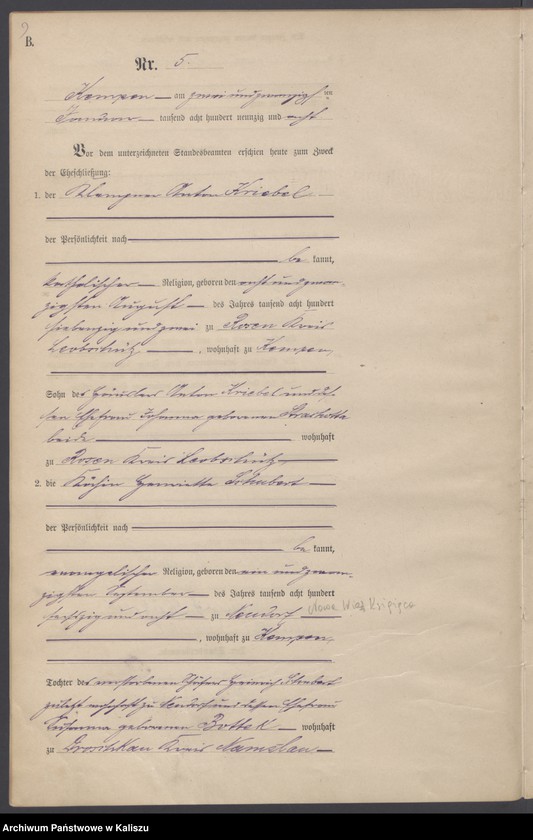 B.
Nr. 5.
Kempen am zwei und zwanzigsten
Januar tausend acht hundert neunzig und acht
Vor dem unterzeichneten Standesbeamten erschien heute zum Zweck
der Eheschließung:
1. der Klempner Anton Kriebel
der Persönlichkeit nach
be kannt,
katholischer Religion, geboren den acht und zwan-
zigsten August des Jahres tausend acht hundert
siebenzig und zwei zu Rosen Kreis
Leobschütz, wohnhaft zu Kempen,
Sohn des Häuslers Anton Kriebel und des-
sen Ehefrau Johanna geborenen
beide wohnhaft
zu Rosen Kreis Leobschütz
2. die Köchin Henriette Schubert
der Persönlichkeit nach
be kannt,
evangelischer Religion, geboren den ein und zwan-
zigsten September des Jahres tausend acht hundert
sechszig und acht zu Neudorf Nowa Wieś Książęca
, wohnhaft zu Kempen,
Tochter des verstorbenen Schäfers Heinrich Schubert
zuletzt wohnhaft zu Neudorf und dessen Ehefrau
Susanna geborenen Bottek wohnhaft
zu Kreis Namslau
Archiwum Państwowe w Kaliszu